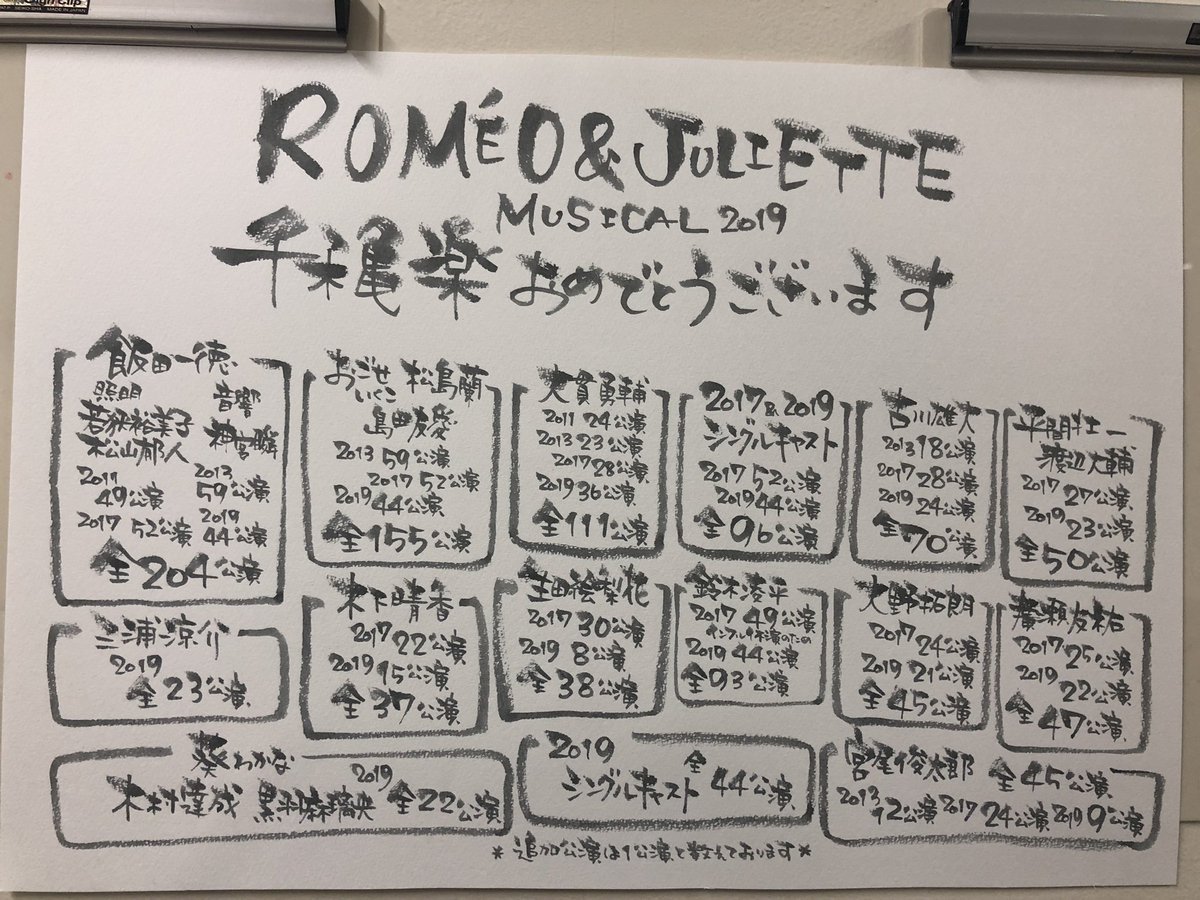 ROMÉO & JULIETTE
MUSICAL 2019
千穐楽 おめでとうございます
飯田一徳
照明 音響
若秋裕美子 神宮瞬
松山郁人
2011 2013
49公演 59公演
2017 2019
52公演 44公演
全204公演
おごせいくこ 松島蘭
島田友愛
2013 59公演
2017 52公演
2019 44公演
全155公演
大貫勇輔
2011 24公演
2013 23公演
2017 28公演
2019 36公演
全111公演
2017&2019
シングルキャスト
2017 52公演
2019 44公演
全96公演
古川雄大
2013 18公演
2017 28公演
2019 24公演
全70公演
平間壮一
渡辺大輔
2017 27公演
2019 23公演
全50公演
三浦涼介
2019
全23公演
木下晴香
2017 22公演
2019 15公演
全37公演
生田絵梨花
2017 30公演
2019 8公演
全38公演
鈴木凌平
2017 49公演
インフル休演のため
2019 44公演
全93公演
大野拓朗
2017 24公演
2019 21公演
全45公演
廣瀬友祐
2017 25公演
2019 22公演
全47公演
葵わかな
木村達成 黒羽麻璃央 2019 全22公演
2019
シングルキャスト 全44公演
宮尾俊太郎 全45公演
2013 12公演 2017 24公演 2019 9公演
*追加公演は1公演と数えております*
MADE IN JAPAN